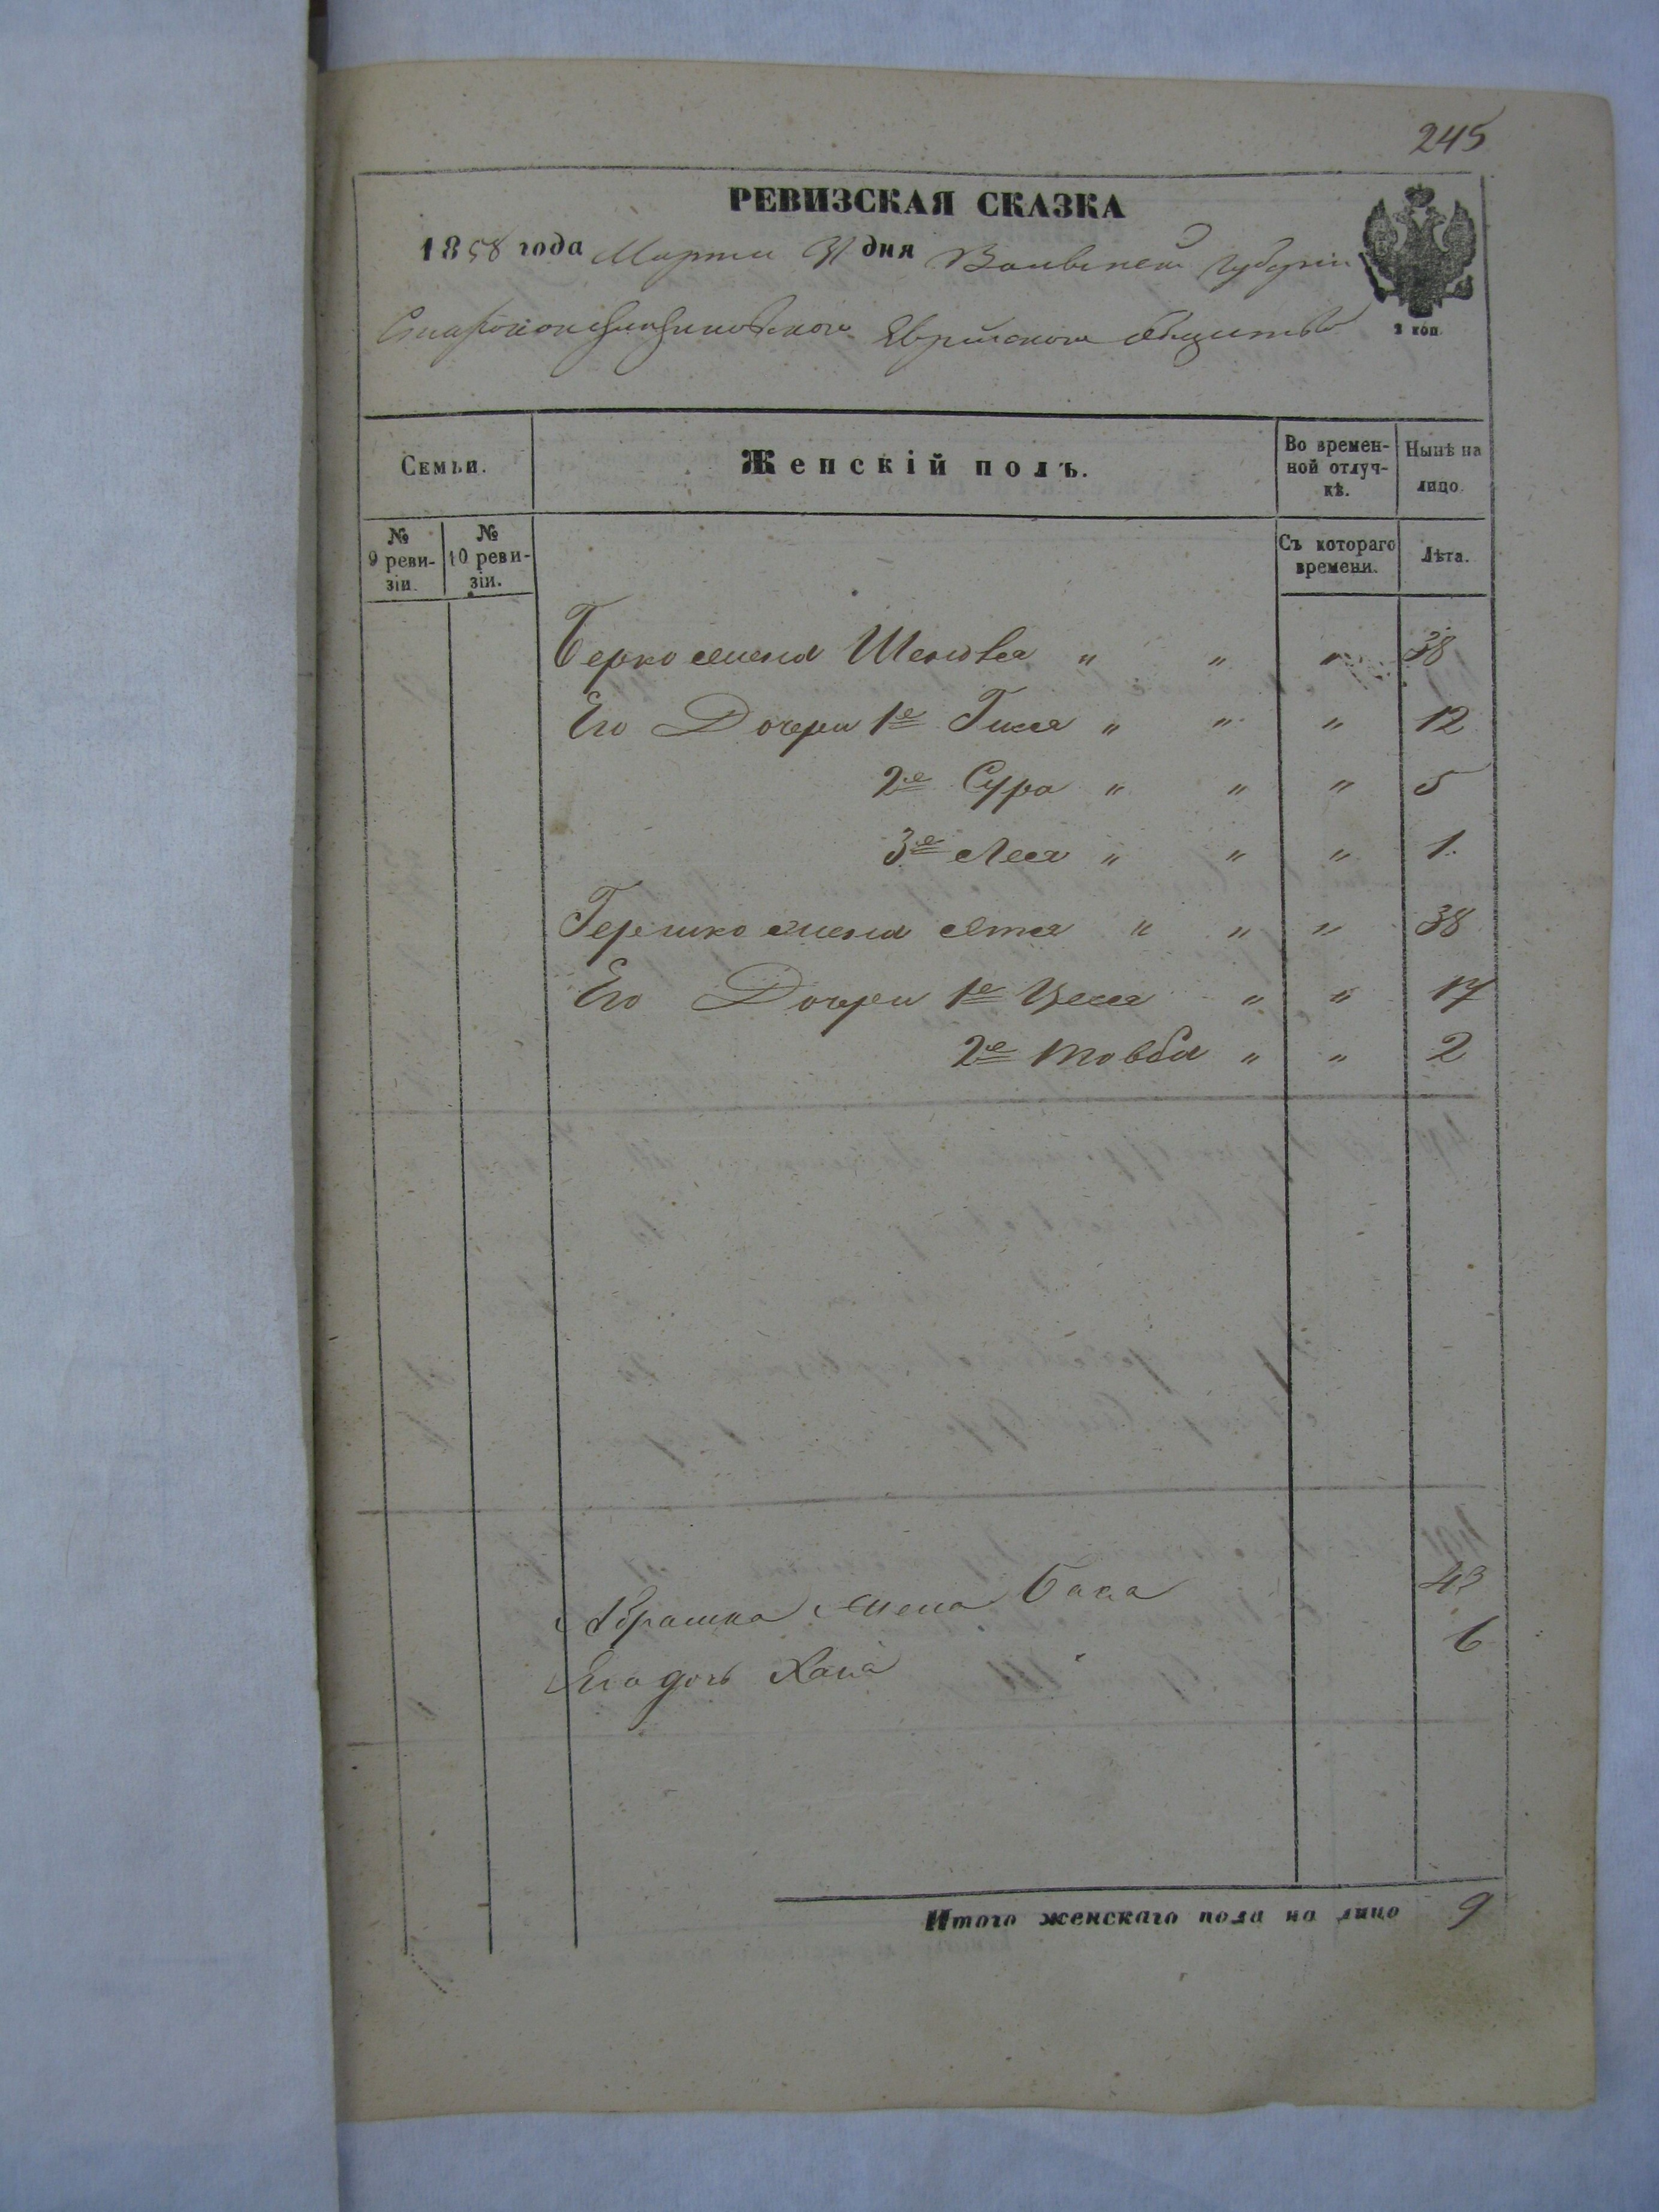 245
РЕВИЗСКАЯ СКАЗКА
1858 года Марта 31 дня Волынской Губерніи
Староконстантиновского Еврейского общества
2 коп.
Семьи.
Женскій полъ.
Во времен-
ной отлуч-
кѣ.
Нынѣ на
лицо.
№
9 реви-
зіи.
№
10 реви-
зіи.
Съ котораго
времени.
Лѣта.
Берко жена Шейва " " " 38
Его Дочери 1е Гися " " " 12
2е Сура " " " 5
3е Лея " " " 1.
Гершко жена Ятя " " " 38
Его Дочери 1е Цеся " " 17
2е Товба " " 2
Абрашка жена Бася 43
Его дочь Хана 6
Итого женскаго пола на лицо 9